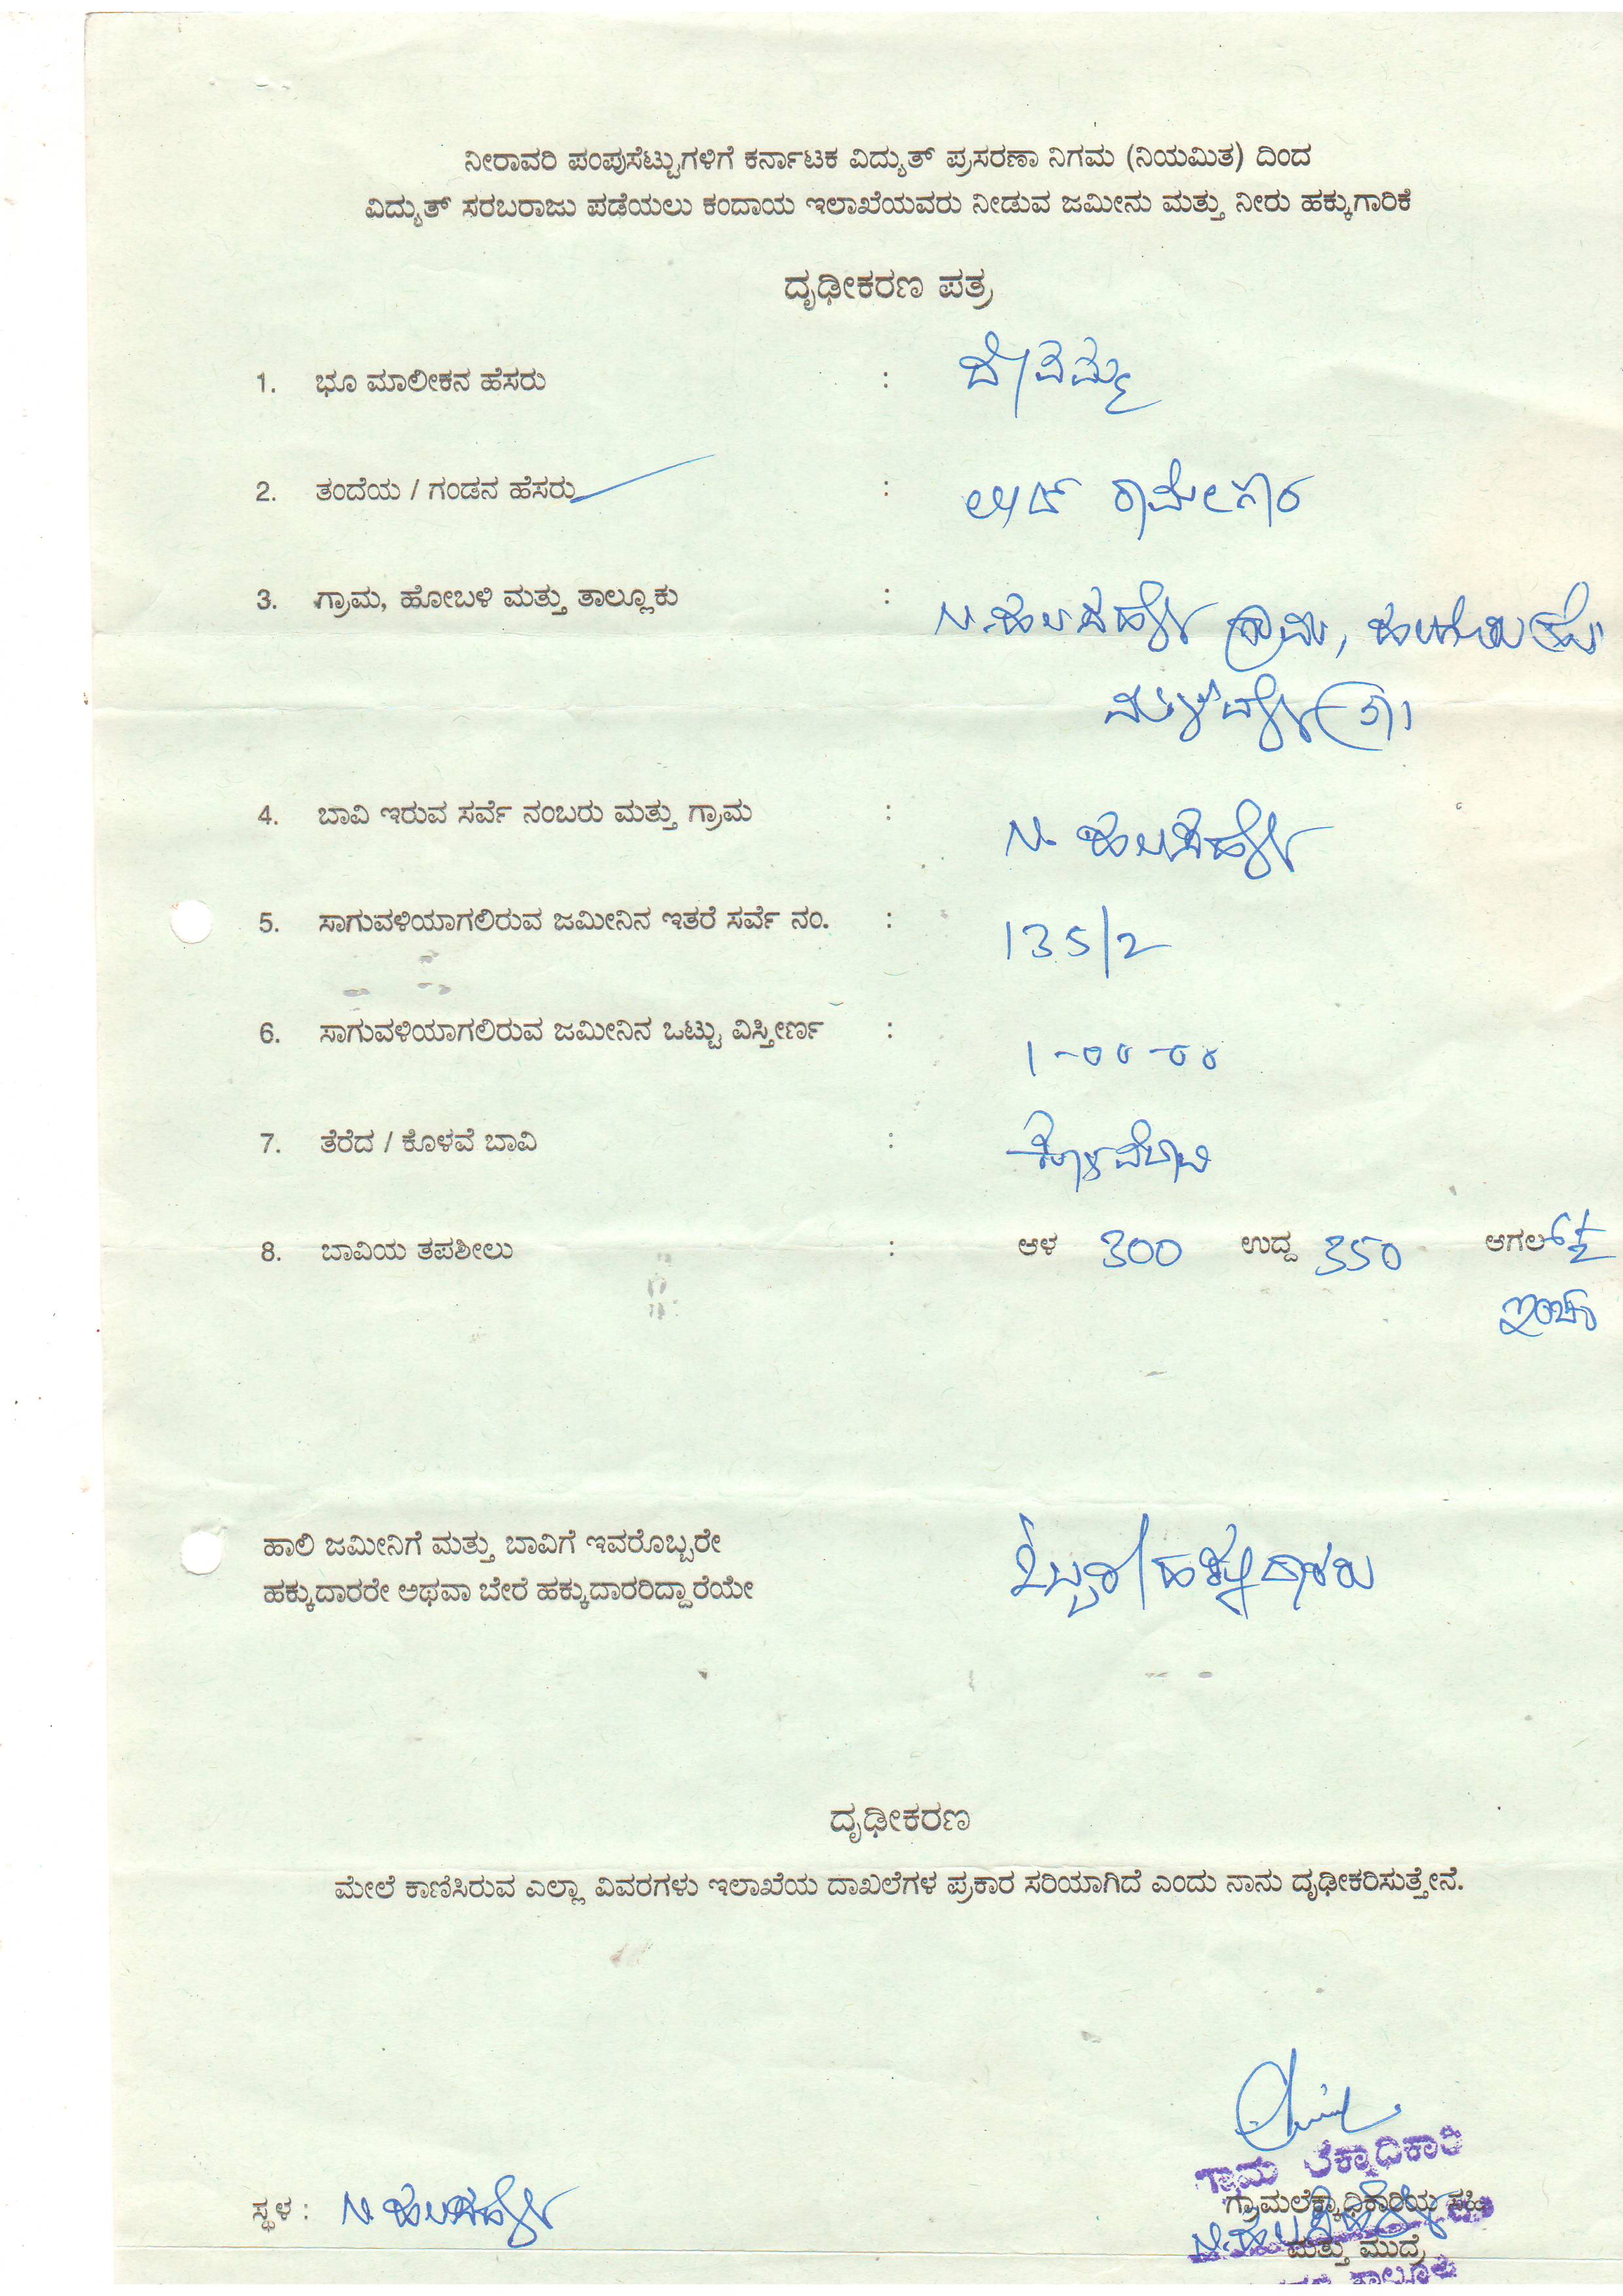 ನೀರಾವರಿ ಪಂಪುಸೆಟ್ಟುಗಳಿಗೆ ಕರ್ನಾಟಕ ವಿದ್ಯುತ್ ಪ್ರಸರಣಾ ನಿಗಮ (ನಿಯಮಿತ) ದಿಂದ
ವಿದ್ಯುತ್ ಸರಬರಾಜು ಪಡೆಯಲು ಕಂದಾಯ ಇಲಾಖೆಯವರು ನೀಡುವ ಜಮೀನು ಮತ್ತು ನೀರು ಹಕ್ಕುಗಾರಿಕೆ
ದೃಢೀಕರಣ ಪತ್ರ
1. ಭೂ ಮಾಲೀಕನ ಹೆಸರು :
2. ತಂದೆಯ / ಗಂಡನ ಹೆಸರು : ಲೇಟ್ ರಾಮೇಗೌಡ
3. ಗ್ರಾಮ, ಹೋಬಳಿ ಮತ್ತು ತಾಲ್ಲೂಕು : ಗ್ರಾಮ,
4. ಬಾವಿ ಇರುವ ಸರ್ವೆ ನಂಬರು ಮತ್ತು ಗ್ರಾಮ :
5. ಸಾಗುವಳಿಯಾಗಲಿರುವ ಜಮೀನಿನ ಇತರೆ ಸರ್ವೆ ನಂ. : 135/2
6. ಸಾಗುವಳಿಯಾಗಲಿರುವ ಜಮೀನಿನ ಒಟ್ಟು ವಿಸ್ತೀರ್ಣ : 1-00-00
7. ತೆರೆದ / ಕೊಳವೆ ಬಾವಿ : ಕೊಳವೆಬಾವಿ
8. ಬಾವಿಯ ತಪಶೀಲು : ಆಳ 300 ಉದ್ದ 350 ಆಗಲ 6½
ಇಂಚು
ಹಾಲಿ ಜಮೀನಿಗೆ ಮತ್ತು ಬಾವಿಗೆ ಇವರೊಬ್ಬರೇ
ಹಕ್ಕುದಾರರೇ ಅಥವಾ ಬೇರೆ ಹಕ್ಕುದಾರರಿದ್ದಾರೆಯೇ ಒಬ್ಬರೇ ಹಕ್ಕುದಾರರು
ದೃಢೀಕರಣ
ಮೇಲೆ ಕಾಣಿಸಿರುವ ಎಲ್ಲಾ ವಿವರಗಳು ಇಲಾಖೆಯ ದಾಖಲೆಗಳ ಪ್ರಕಾರ ಸರಿಯಾಗಿದೆ ಎಂದು ನಾನು ದೃಢೀಕರಿಸುತ್ತೇನೆ.
ಗ್ರಾಮ ಲೆಕ್ಕಾಧಿಕಾರಿ
ಸ್ಥಳ : ಗ್ರಾಮಲೆಕ್ಕಾಧಿಕಾರಿಯ ಸಹಿ
ಮತ್ತು ಮುದ್ರೆ
ತಾಲ್ಲೂಕು